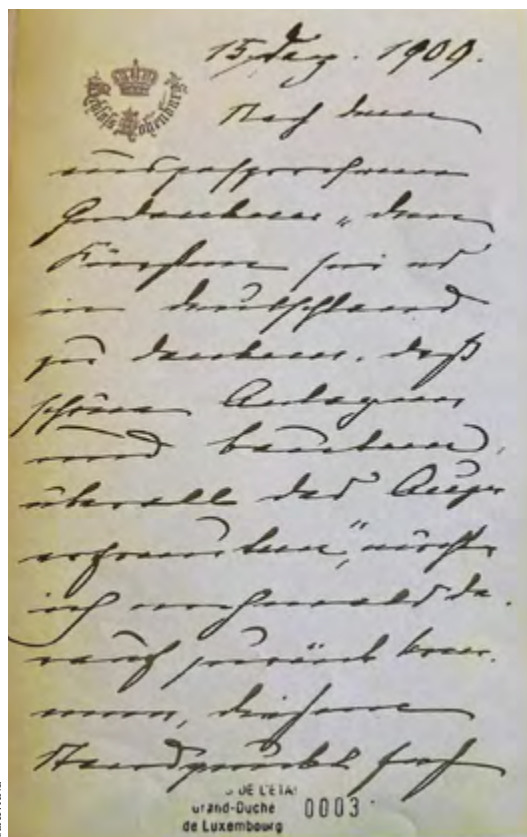 15. Dez. 1909.
Schloss Hohenburg
Nach dem
ausgesprochenen
Gedanken „den
Fürsten sei es
in Deutschland
zu danken, daß
schöne Anlagen
und Bauten,
überall das Auge
erfreuten", möchte
ich nochmals da-
rauf zurück kom-
men, diesem
Standpunkt
DE L'ETAT
Grand-Duche
de Luxembourg
0003